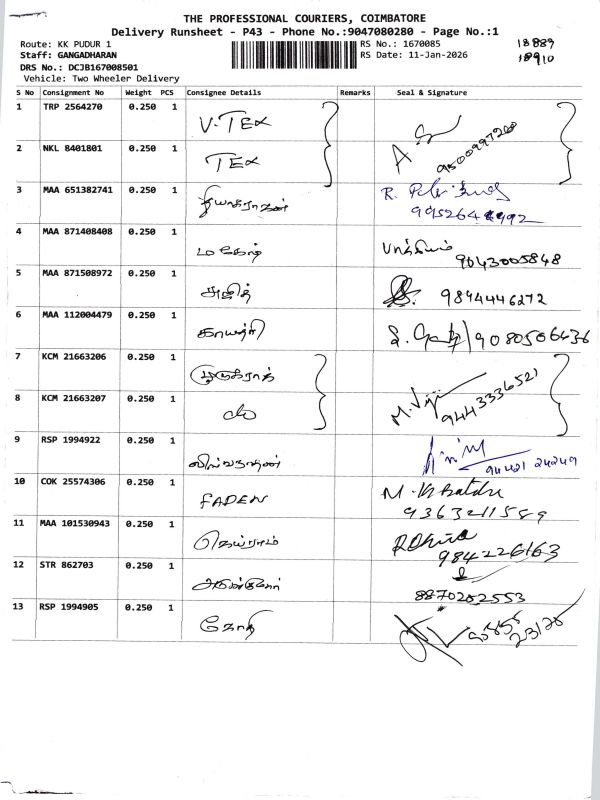 THE PROFESSIONAL COURIERS, COIMBATORE
Delivery Runsheet - P43 - Phone No.:9047080280 - Page No.:1
Route: KK PUDUR 1 RS No.: 1670085 18889
Staff: GANGADHARAN RS Date: 11-Jan-2026 18910
DRS No.: DCJB167008501
Vehicle: Two Wheeler Delivery
S No Consignment No Weight PCS Consignee Details Remarks Seal & Signature
1 TRP 2564270 0.250 1 V-TEX
2 NKL 8401801 0.250 1 TEX 9500997200
3 MAA 651382741 0.250 1 தியாகராஜன் R.
4 MAA 871408408 0.250 1 மகேஷ் 9043005848
5 MAA 871508972 0.250 1 அஜித் 9894446272
6 MAA 112004479 0.250 1 காயத்ரி 9080506436
7 KCM 21663206 0.250 1
8 KCM 21663207 0.250 1 do 9443336521
9 RSP 1994922 0.250 1 லிங்கநாதன் 94421 24249
10 COK 25574306 0.250 1 FADEN 9363211589
11 MAA 101530943 0.250 1 ஜெய்ராம் 9842226163
12 STR 862703 0.250 1 8870202553
13 RSP 1994905 0.250 1 ஜோதி